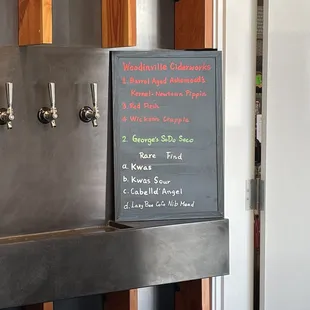 Woodinville Ciderworks
1. Barrel Aged
Kernel - Newtown Pippin
3. Red Flesh
4. Wickson
2. George's SoDo Seco
Rare Find
a. Kwas
b. Kwas Sour
c. Cabelld' Angel
d. Lazy Bee CoCo Nib Mead